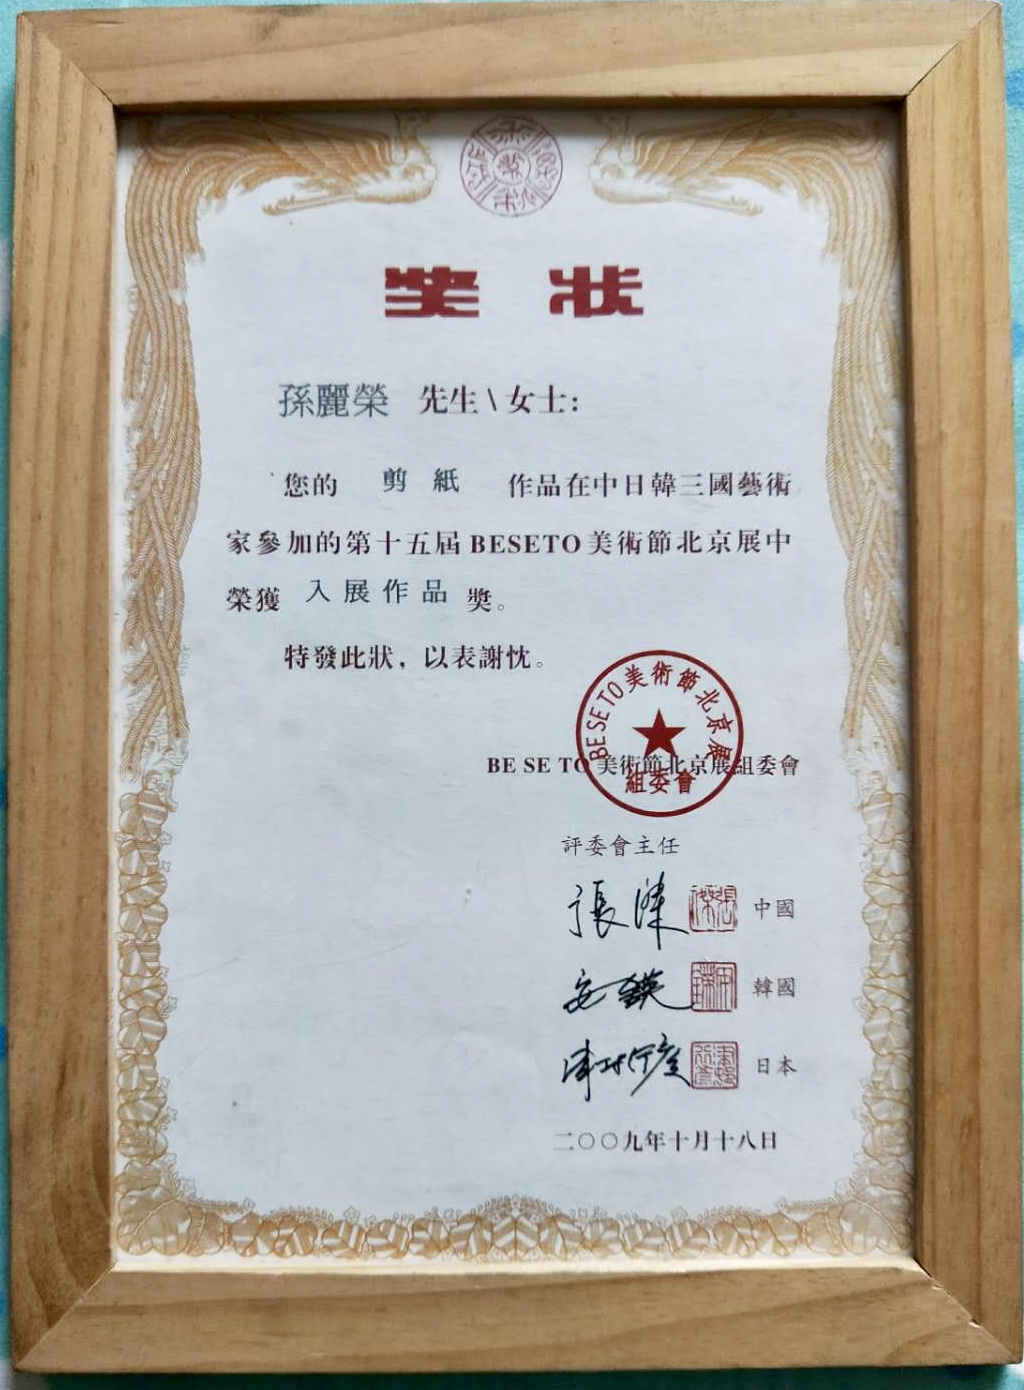 奖状
孫麗榮 先生\女士:
您的 剪紙 作品在中日韓三國藝術
家參加的第十五屆BESETO美術節北京展中
榮獲 入展作品 獎。
特發此狀，以表謝忱。
BESETO美術節北京展
組委會
BE SE TO 美術節北京展組委會
評委會主任
中國
韓國
日本
二〇〇九年十月十八日